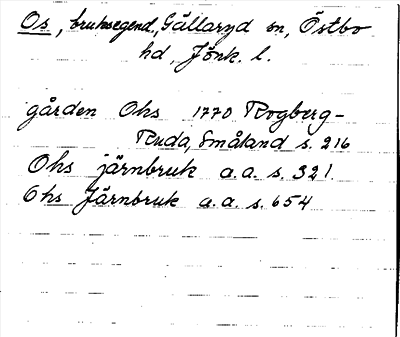 Os, bruksegend., Gällaryd sn, Östbo
hd, Jönk. l.
gården Ohs 1770 Rogberg-
Ruda, Småland s. 216
Ohs järnbruk a.a. s. 321.
Ohs Järnbruk a.a. s. 654